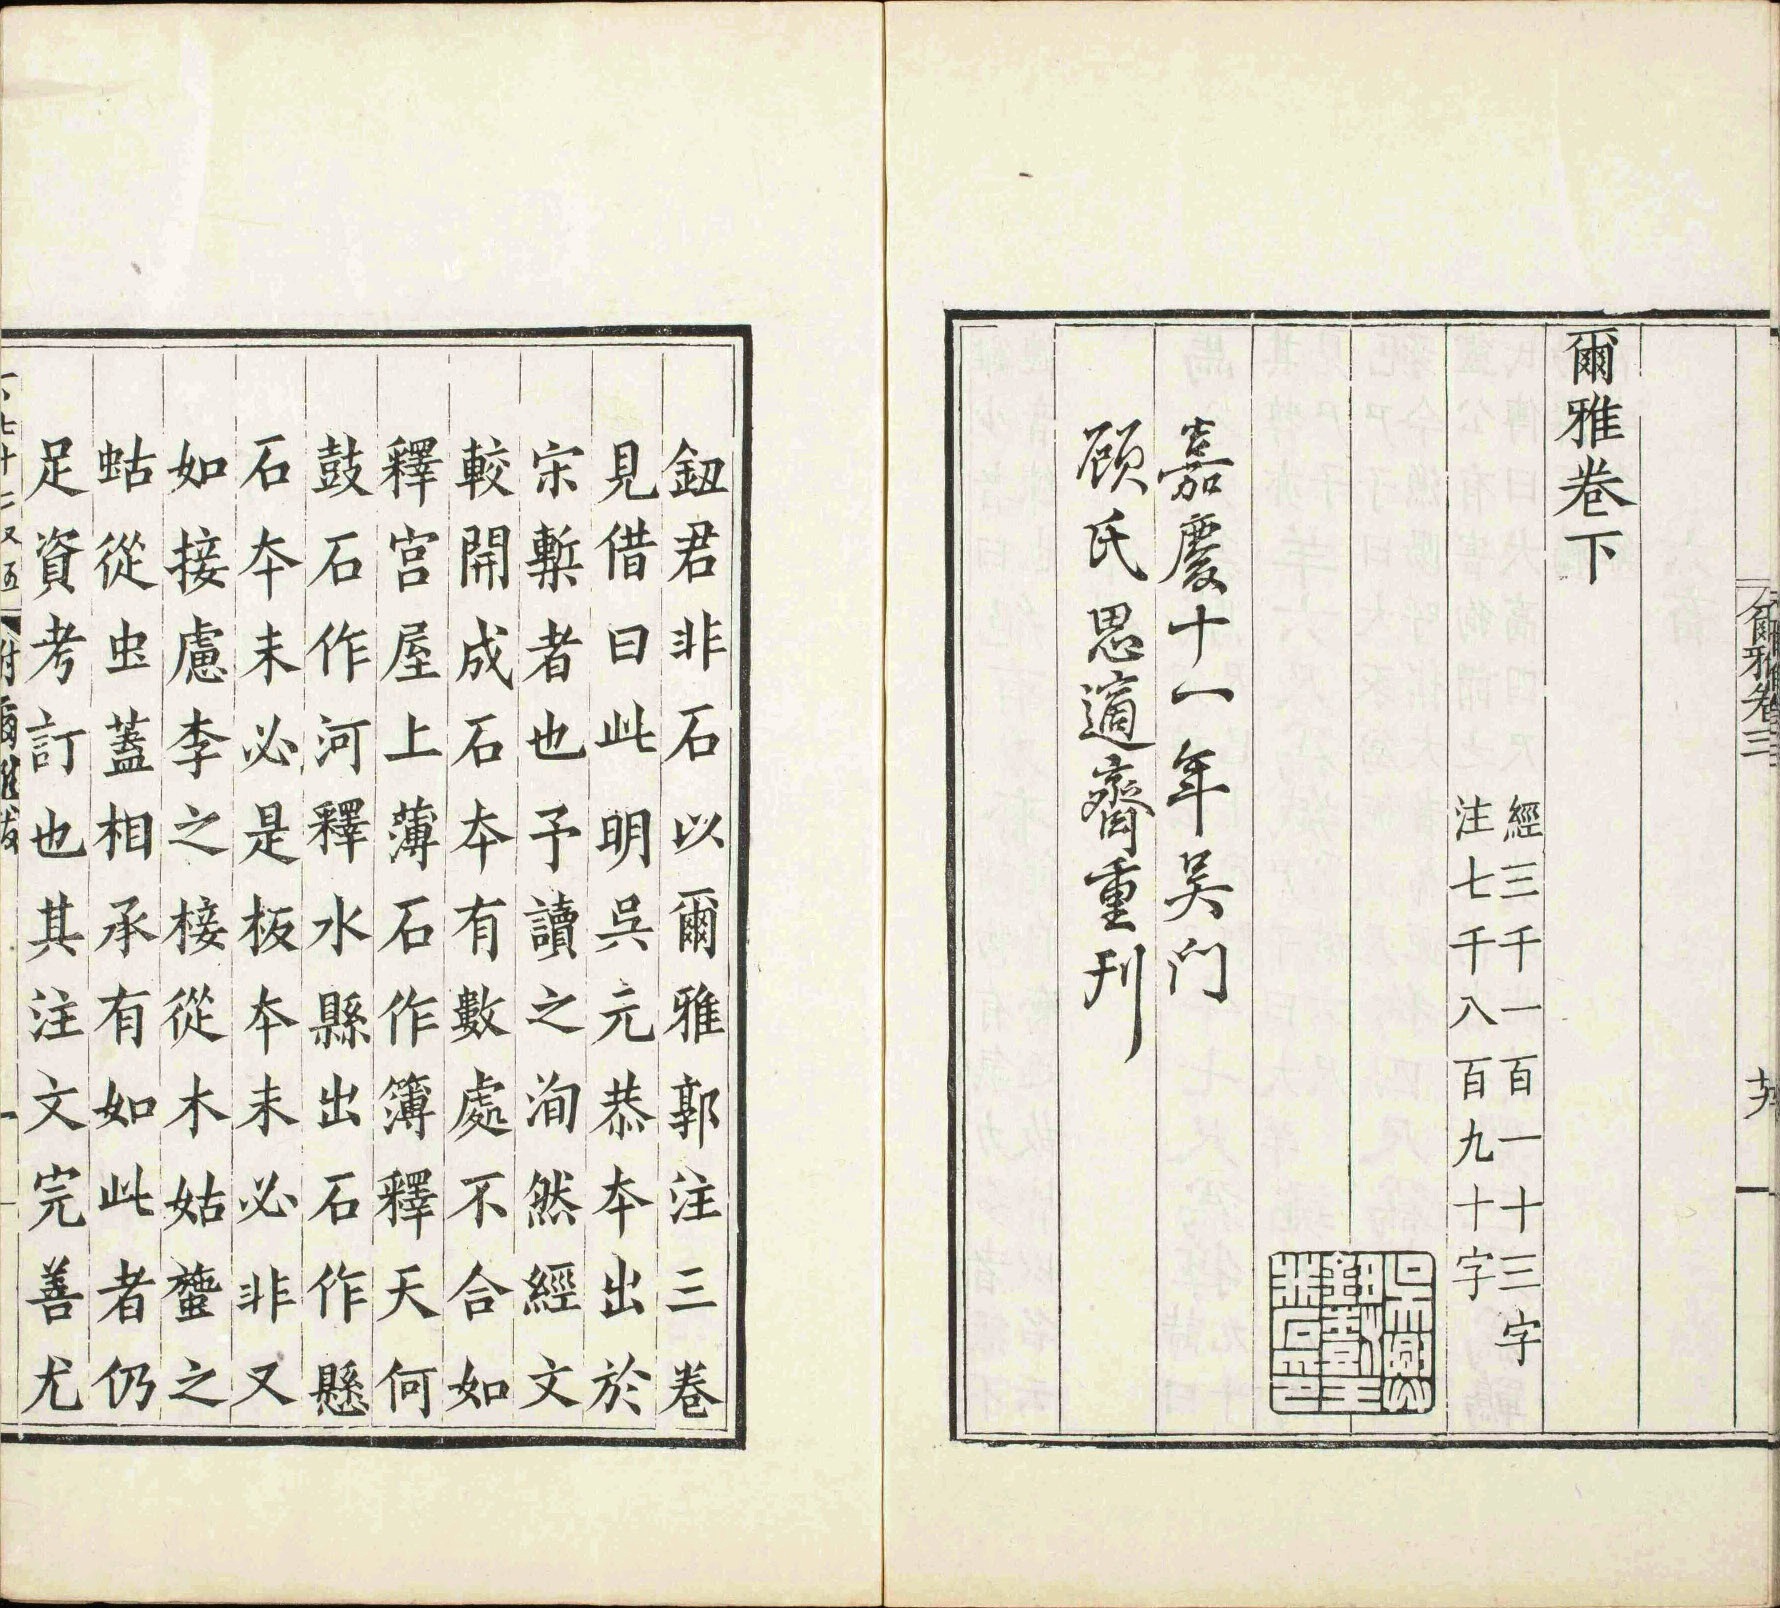 爾雅卷下
經三千一百一十三字
注七千八百九十字
嘉慶十一年吴门
顾氏思適齋重刊
爾雅卷三
鈕君非石以爾雅郭注三卷
見借曰此明呉元恭夲出於
宋槧者也予讀之洵然經文
較開成石夲有數處不合如
釋宫屋上薄石作簿釋天何
鼓石作河釋水縣出石作懸
石夲未必是板夲未必非又
如接慮李之椄從木姑䗐之
蛄從虫蓋相承有如此者仍
足資考訂也其注文完善尤